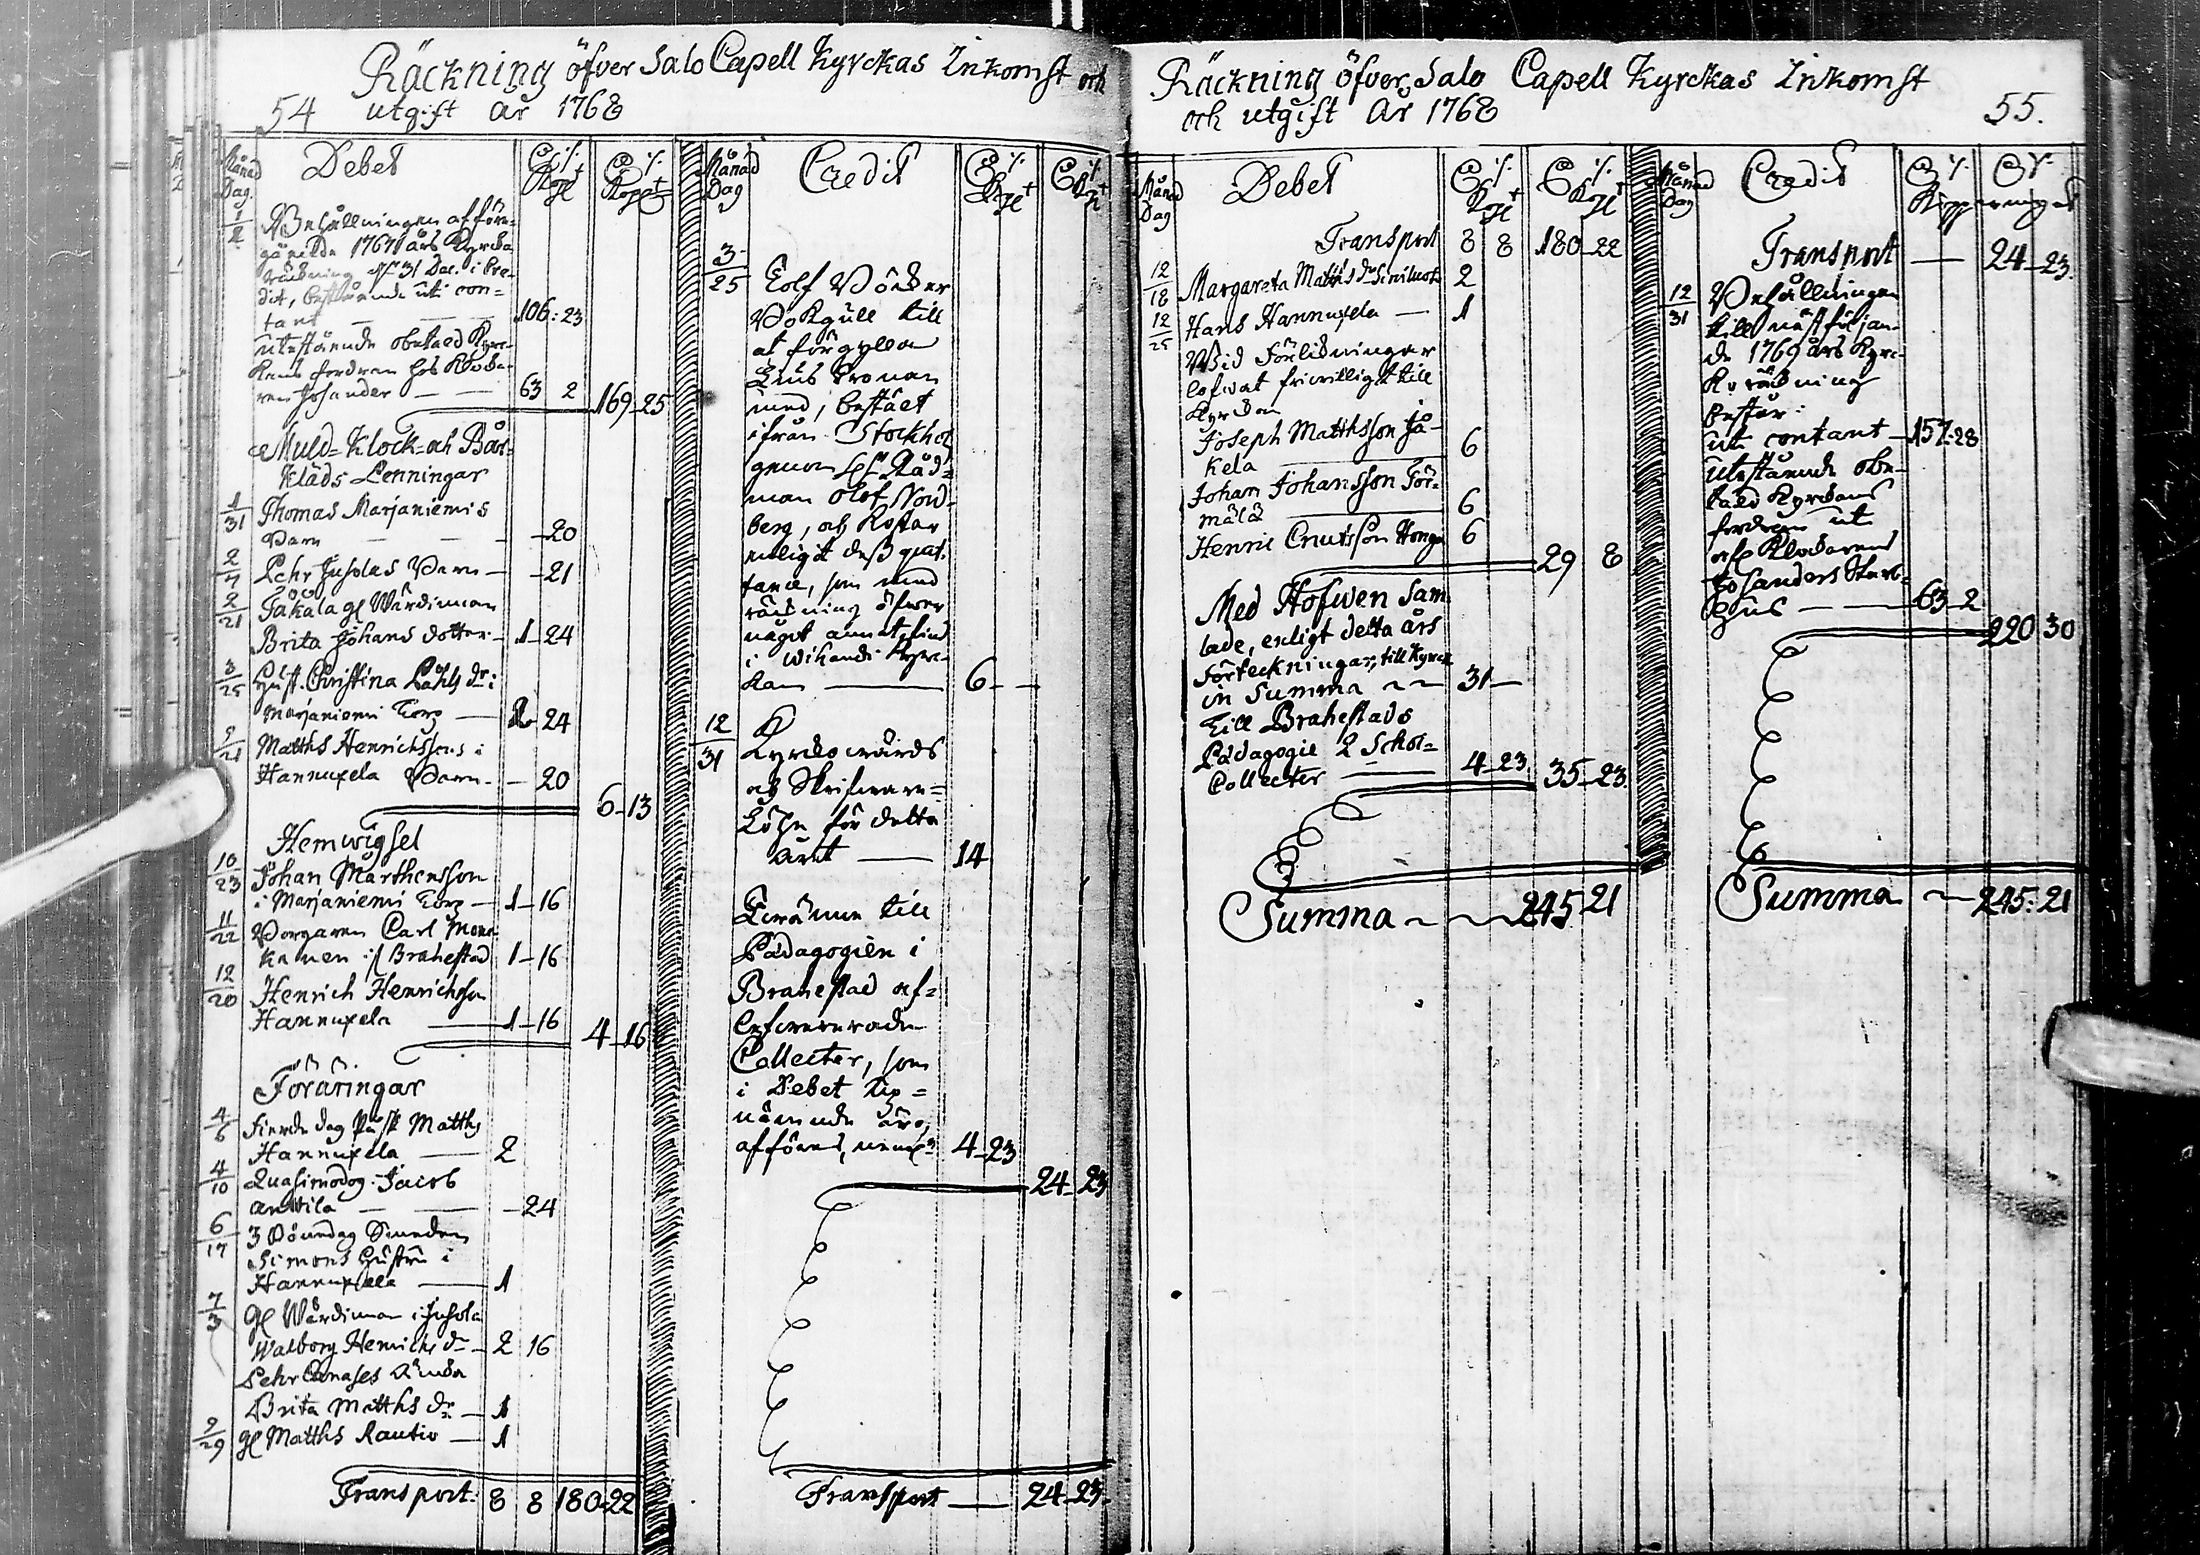 Räckning öfver Salo Capell Kyrckas Inkomst och
54 utgift år 1768
Månad Dag Debet
1/1 Behållningen af före-
gående 1767 års Kyrcko
räckning af 31 Dec. i Cre-
dit, bestående uti con-
tant — 106:23
utestående obetald Kyrc-
kans fordran hos Klocka-
ren Johander — 63 2 169-25
Muld- Klock- och Bår-
kläds Lenningar
1/31 Thomas Marjaniemis
Barn — 20
2/7 Pehr Juholas Barn — 21
2/21 Jåkala gl Wärdinnan
Brita Johans dotter 1-24
3/25 Hust. Christina Påhls dr i
Marjaniemi Torp — 2-24
9/21 Matths Henrichssons i
Hannuxela Barn — 20
6-13
Hemwigsel
10/23 Johan Marthensson
i Marjaniemi Torp — 1-16
11/22 Borgaren Carl
i Brahestad 1-16
12/20 Henrich Henrichsson
Hannuxela — 1-16 4-16
Föräringar
4/6 Fierde dag Påsk Matths
Hannuxela — 2
4/10 Quasimodog. Jacob
Anttila — 24
6/17 3 Böndag
Simons Hustru i
Hannuxela — 1
7/3 gl Wärdinnan i Juhola
Walborg Henrichs dr — 2 16
Pehr Änka
Brita Matths dr — 1
9/29 gl Matths Rautio — 1
Transport: 8 8 180-22
Månad Dag Credit
3/25 Tolf Böcker
Bokgull till
at förgylla
Ljus Cronan
med, bestält
ifrån Stockholm
genom H:r Råd-
man Olof Nord-
berg, och kostar
enligit dess quit-
tance, som med
räckning öfwer
något annat, sind
i
kan — 6 —
12/31 Kyrckowärds
och Skrifware-
Löhn för detta
året — 14
Lewämne till
Pädagogien i
Brahestad af-
lefwererade
Collecter, som
i Debet up-
nämnde äro,
afföres, neml: 4-23
24-23
Transport — 24-23
Räckning öfver Salo Capell Kyrckas Inkomst
och utgift År 1768 55.
Månad Dag Debet
Transport 8 8 180-22
12/18 Margareta Matths dr 2
12/25 Hans Hannuxela — 1
Wid Förlidningar
lofwat friwilligt till
Kyrckan
Joseph Matthsson Jå-
kela — 6
Johan JohanssonFör-
mälä — 6
Henric Cnutsson Honga 6
29 8
Med Håfwen Sam-
lade, enligt detta års
Förteckningar, till Kyrck
in Summa — 31 —
Till Brahestads
Pädagogie & Schol-
Collecter — 4-23 35-23
Summa — 245 21
Månad Dag Credit
Transport — 24-23.
12/31 Behållningen
till näst följan-
de 1769 års Kyrc-
ko räckning
består:
uti contant — 157:28
Utestående obe-
tald Kyrckans
fordran uti
afl Klockarens
Johanders Sterb-
hus — 63-2
220 30
Summa — 245:21